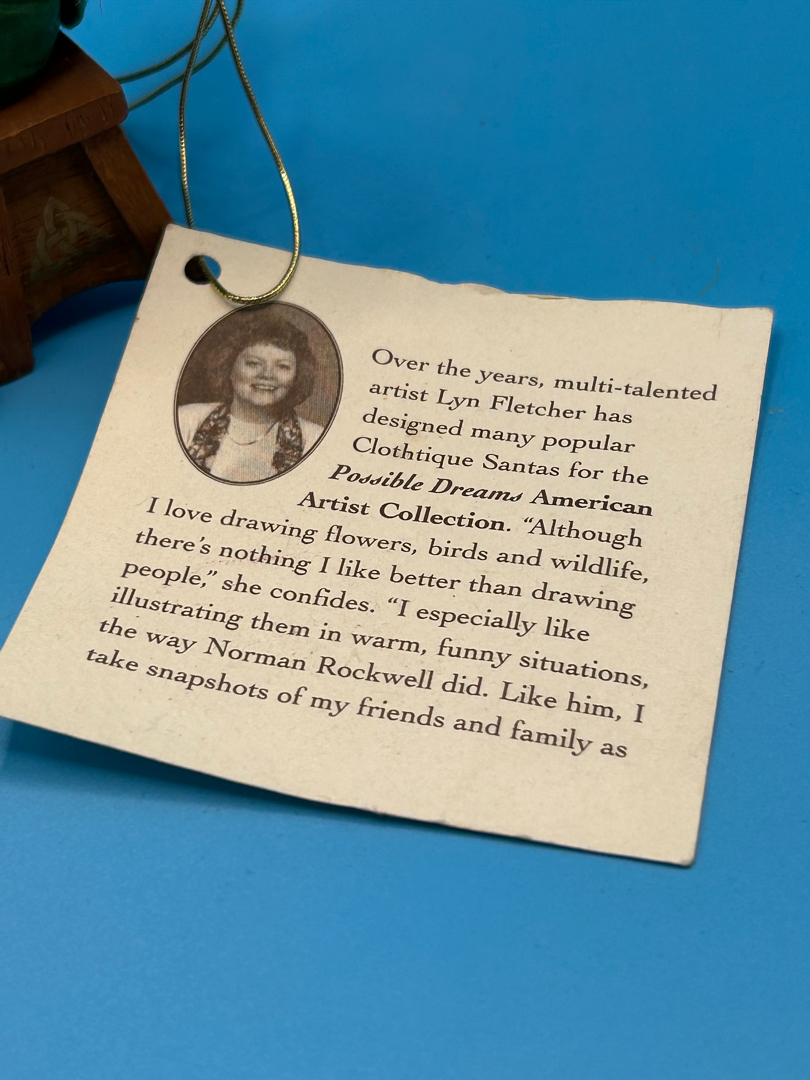 Over the years, multi-talented
artist Lyn Fletcher has
designed many popular
Clothtique Santas for the
Possible Dreams American
Artist Collection. “Although
I love drawing flowers, birds and wildlife,
there’s nothing I like better than drawing
people,” she confides. “I especially like
illustrating them in warm, funny situations,
the way Norman Rockwell did. Like him, I
take snapshots of my friends and family as